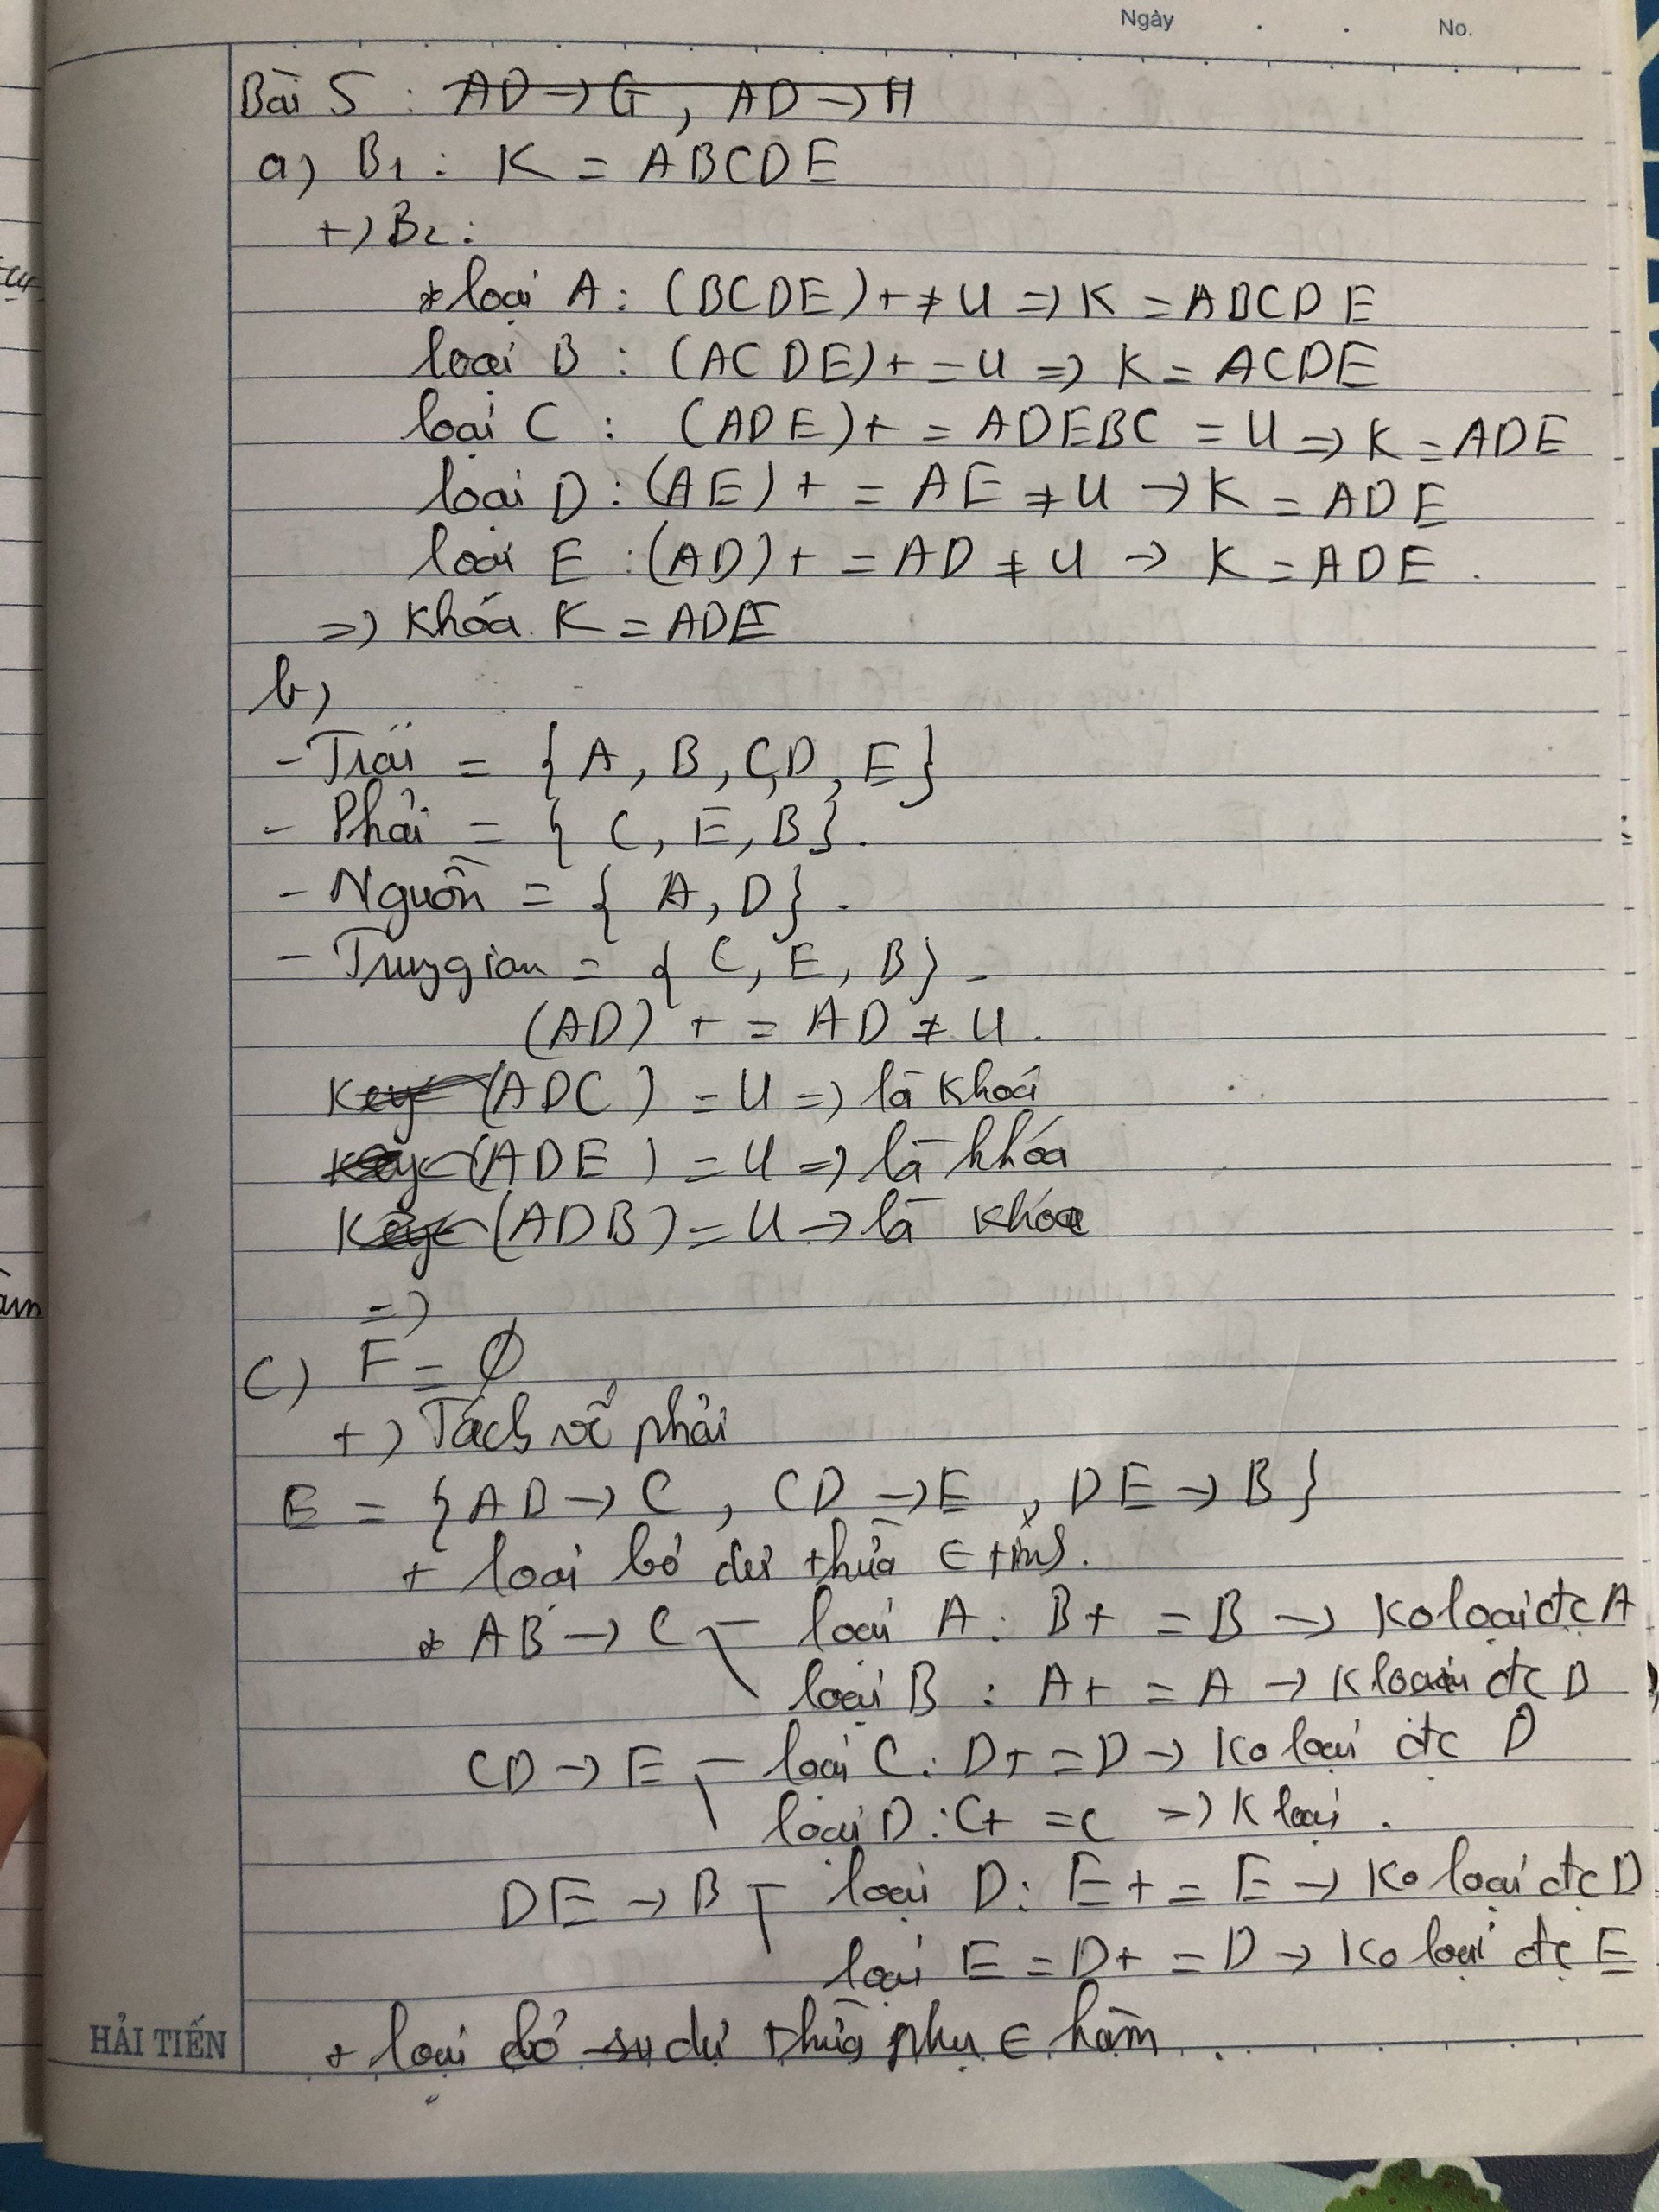 Ngày . . No.
Bài 5 : AD → G , AD → H
a) B1 : K = ABCDE
+) B2 :
* loại A : (BCDE)+ ≠ U => K = ABCDE
loại B : (ACDE)+ = U => K = ACDE
loại C : (ADE)+ = ADEBC = U => K = ADE
loại D : (AE)+ = AE ≠ U → K = ADE
loại E : (AD)+ = AD ≠ U → K = ADE .
=> Khóa K = ADE
b)
- Trái = { A, B, C, D, E }
- Phải = { C, E, B } .
- Nguồn = { A, D } .
- Trung gian = { C, E, B } -
(AD)+ = AD ≠ U .
Key (ADC) = U => là khoá
Key (ADE) = U => là khóa
Key (ADB) = U → là khóa
=>
C) F = Ø
+) Tách vế phải
E = { AB → C , CD → E , DE → B }
+ loại bỏ dư thừa
* AB → C - loại A : B+ = B → Ko loại đc A
loại B : A+ = A → K loại đc B
CD → E - loại C : D+ = D → Ko loại đc D
loại D : C+ = C => K loại .
DE → B - loại D : E+ = E → Ko loại đc D
loại E = D+ = D → Ko loại đc E
+ loại bỏ dư thừa phụ hàm .
HẢI TIẾN